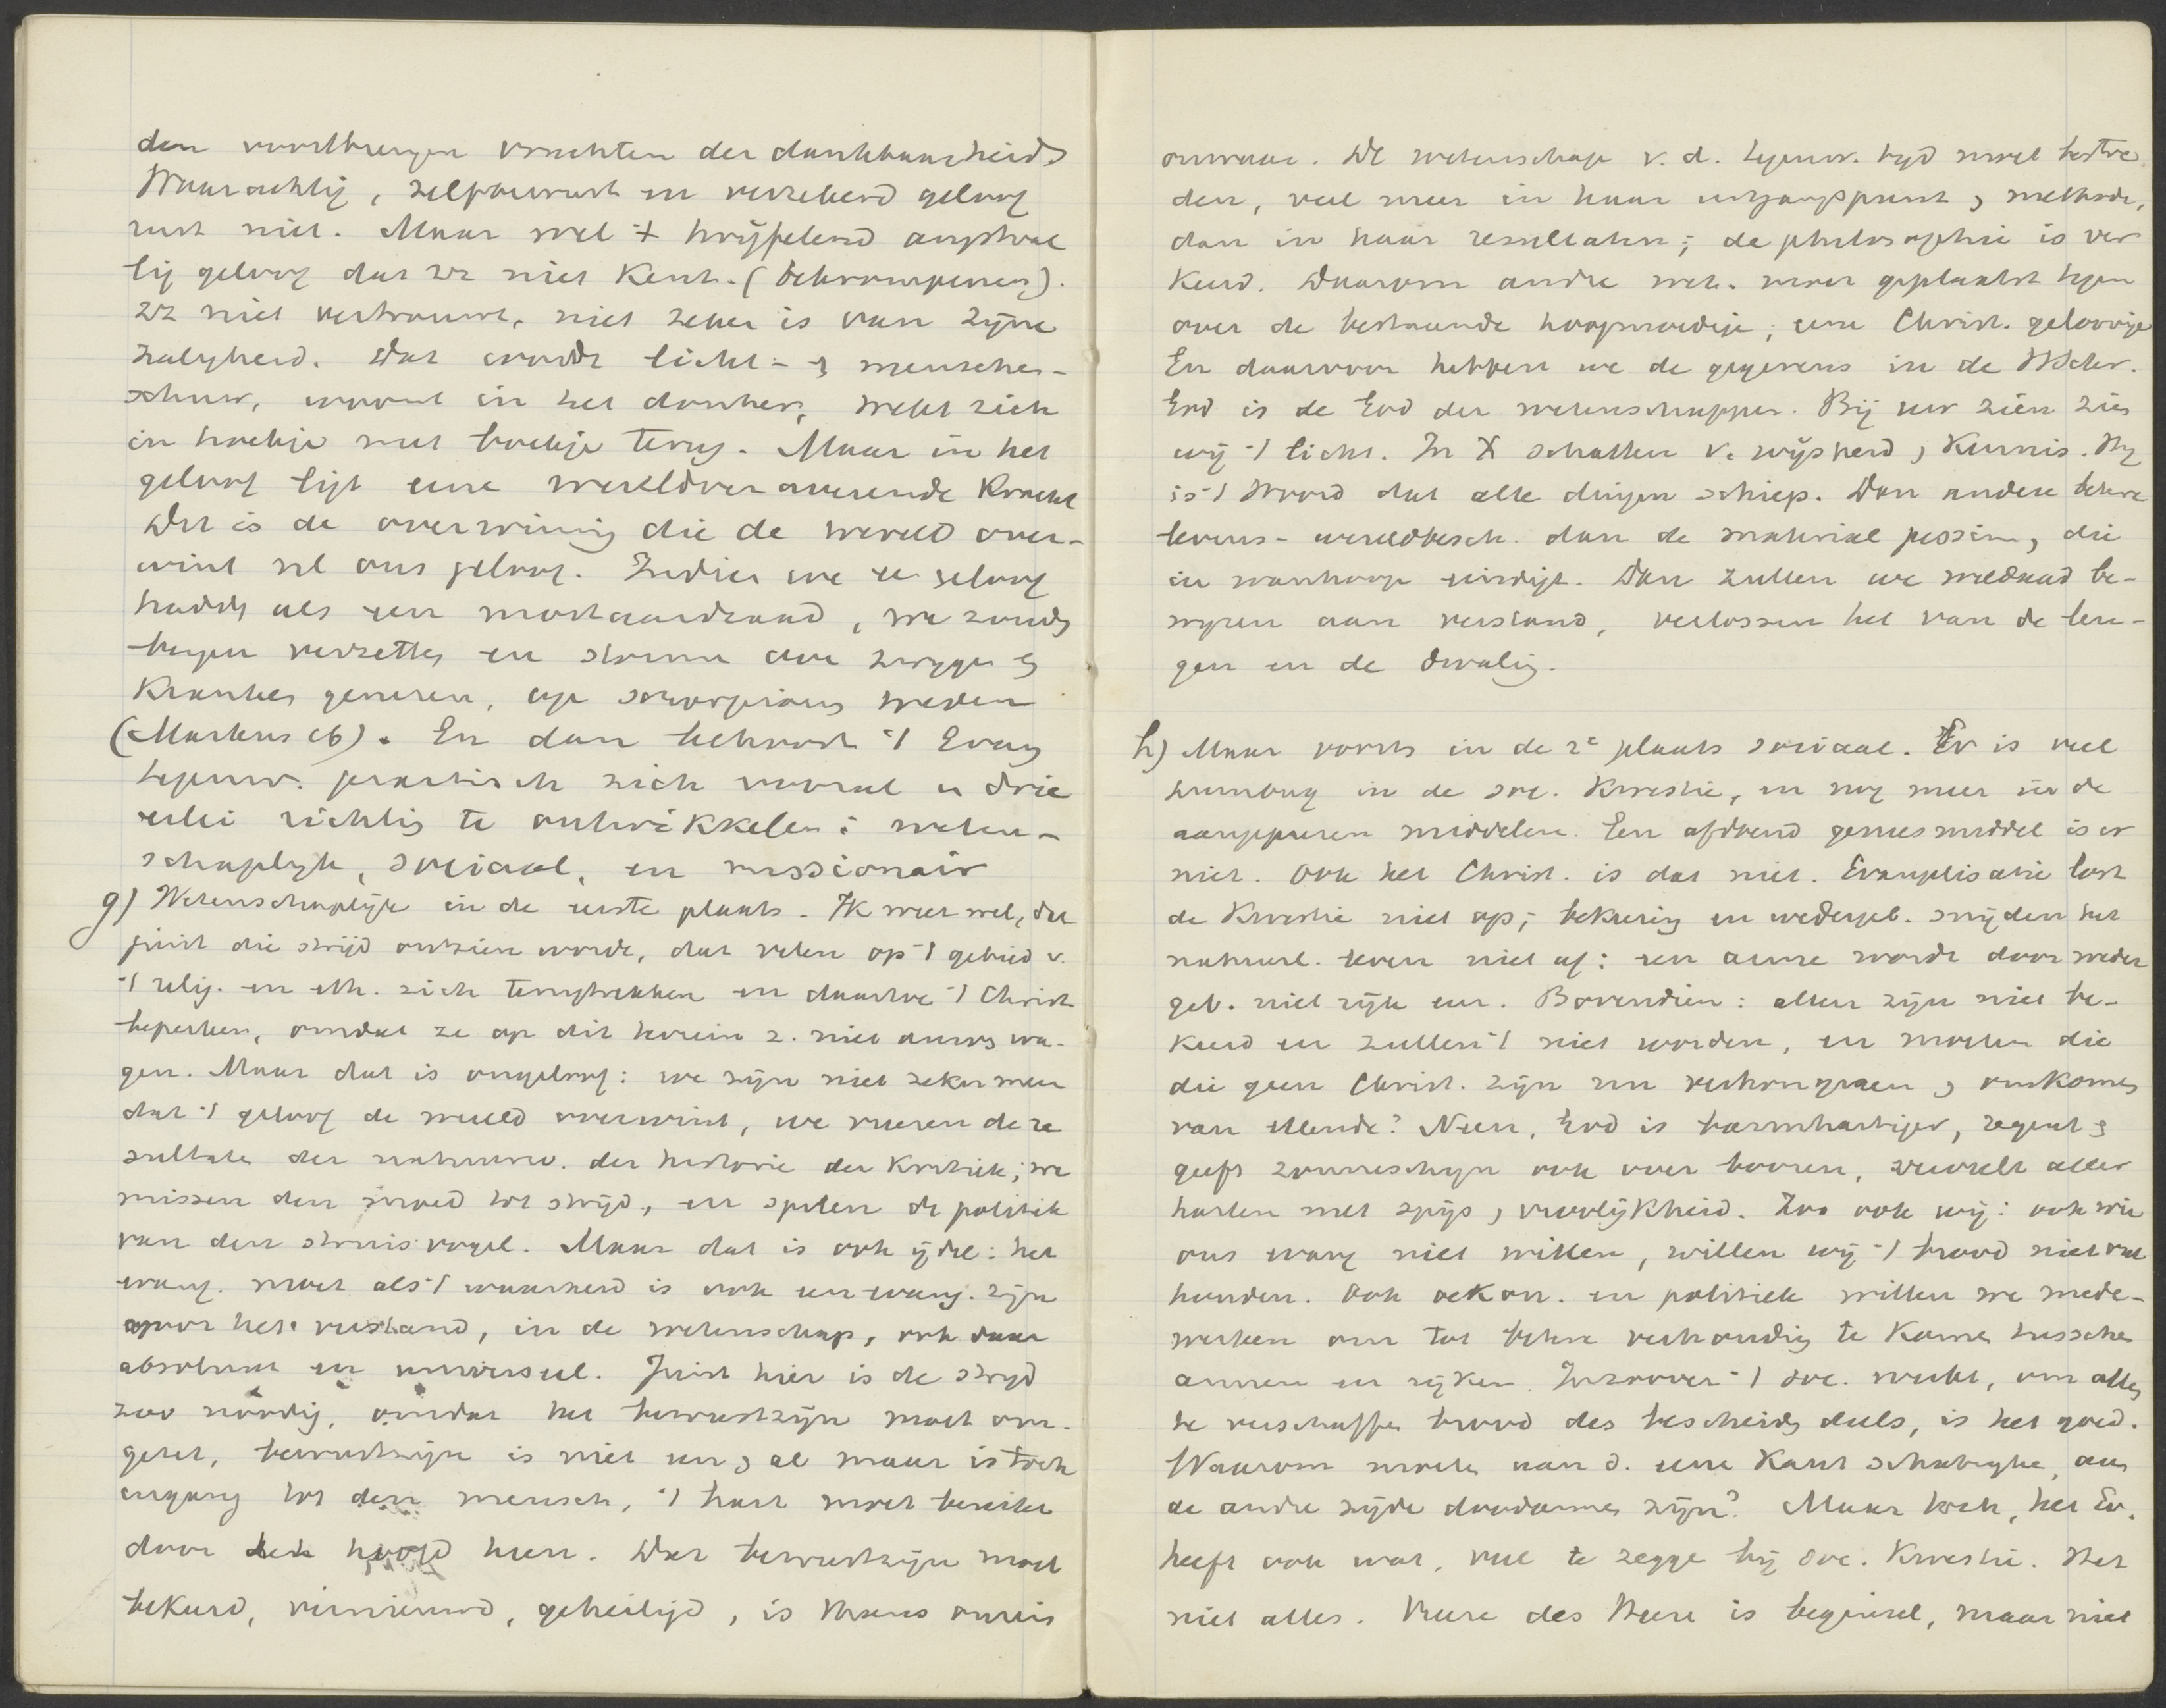 den voortbrengen vruchten der dankbaarheid
Waarachtig, zelfbewust en verzekerd geloof
rust niet. Maar wel 't twijfelend angstval
lig geloof dat zz niet kent. (bekrompenen).
zz niet vertrouwt, niet zeker is van zijne
zaligheid. Dat wordt licht- & menschen-
schuw, woont in het donker, trekt zich
in hoekje met boekje terug. Maar in het
geloof ligt eene wereldoverwinnende kracht
Dit is de overwining die de wereld over-
wint nl ons geloof. Indien we een geloof
hadds als een mostaardzaad, we zouds
bergen verzetten en storm doen zwijgen &
Kranken genezen, op scorpioens treden
(Markus 16). En dan behoort 't Evang
tegenw. practisch zich vooral in drie
erlei richting te ontwikkelen: weten-
schaplijk, sociaal, en missionair
g) Wetenschaplijk in de eerste plaats. Ik weet wel, dat
juist die strijd ontzien wordt, dat velen op 't gebied v.
't relig. en eth. zich terugtrekken en daartoe 't Christ
beperken, omdat ze op dit terrein z. niet durvs wa-
gen. Maar dat is ongeloof: we zijn niet zeker meer
dat 't geloof de wereld overwint, we vreezen de re
sultaten der natuurw. der historie der Kritiek; we
missen den moed tot strijd, en spelen de politiek
van den struisvogel. Maar dat is ook ijdel: het
evang. moet als 't waarheid is ook een evang. zijn
voor het verstand, in de wetenschap, ook daar
absoluut en universeel. Juist hier is de strijd
zoo noodig, omdat het bewustzijn moet om-
gezet, bewustzijn is niet een & al maar is toch
ingang tot den mensch, 't hart moet bereikt
door het hoofd heen. Dat bewustzijn moet
bekeerd, vernieuwd, geheiligd, is onrein
onwaar. De wetenschap v. d. tegenw. tijd moet bestre
den, veel meer in haar uitgangspunt & methode,
dan in haar resultaten; de philosophie is ver
keerd. Daarom andre wet. moet geplaatst tegen
over de bestaande hoopmoedige; eene Christ. geloovige
En daarvoor hebben we de gegevens in de HSchr.
God is de God der wetenschappen. Bij uw zien zien
wij 't licht. In X schatten v. wijsheid & Kennis. Hij
is 't Woord dat alle dingen schiep. Dan andere betere
levens- wereldbesch. dan de material pessim, die
in wanhoop eindigt. Dan zullen we weldaad be-
wijzen aan verstand, verlossen het van de leu-
gen en de dwaling.
h) Maar voorts in de 2e plaats sociaal. Er is veel
humbug in de soc. Kwestie, en nog meer in de
aangeprezen middelen. Een afdoend geneesmiddel is er
niet. Ook het Christ. is dat niet. Evangelisatie lost
de Kwestie niet op; bekering en wedergeb. snijden het
natuurl. leven niet af: een arme wordt door weder
geb. niet rijk enz. Bovendien: allen zijn niet be-
keerd en zullen 't niet worden, en moeten die
die geen Christ. zijn nu verhongeren & omkomen
van ellende? Neen, God is barmhartiger, regent &
geeft zonneschijn ook over boozen, vervult aller
harten met spijs & vroolijkheid. Zoo ook wij: ook wie
ons evang niet willen, willen wij 't brood niet ont
houden. Ook oekon. en politiek willen we mede-
werken om tot betere verhouding te komen tusschen
armen en rijken. Inzoover 't soc. werkt, om allen
te verschaffen brood des bescheiden deels, is het goed.
Waarom moeten aan d. eene Kant schatrijke, aan
de andre zijde doodarmen zijn? Maar toch, het Ev.
heeft ook wat, veel te zegge bij soc. Kwestie. Het
niet alles. Vreeze des Heere is beginsel, maar niet